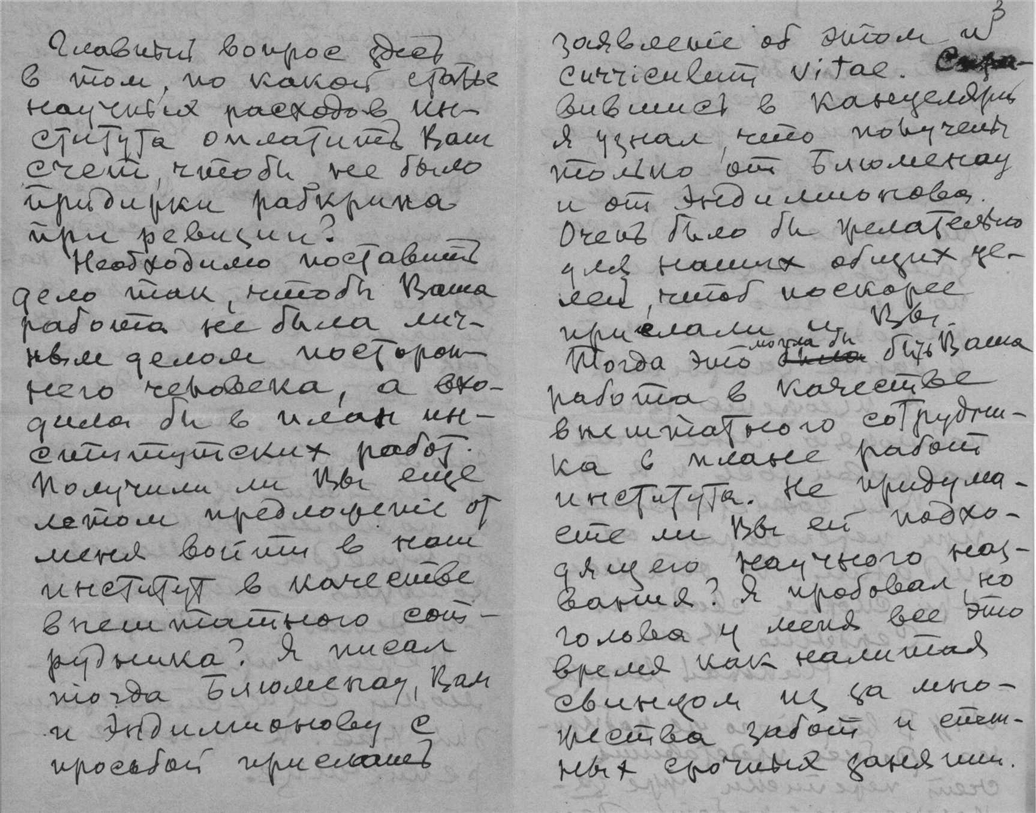 Главный вопрос здесь
в том, по какой статье
научных расходов ин-
ститута оплатить Ваш
счет, чтобы не было
придирки рабкрина
при ревизии?
Необходимо поставить
дело так, чтобы Ваша
работа не была лич-
ным делом посторон-
него человека, а вхо-
дила бы в план ин-
ститутских работ.
Получили ли Вы еще
летом предложение от
меня войти в наш
институт в качестве
внештатного сот-
рудника? Я писал
тогда Блюменау, Вам
и Эндимионову с
просьбой прислать
3
заявление об этом и
curriculum vitae. Спра-
вившись в канцелярии
я узнал, что получены
только от Блюменау
и от Эндимионова.
Очень было бы желательно
для наших общих це-
лей, чтоб поскорее
прислали и Вы.
Тогда это могла бы быть Ваша
работа в качестве
внештатного сотрудни-
ка в плане работ
института. Не придума-
ете ли Вы ей подхо-
дящего научного наз-
вания? Я пробовал, но
голова у меня все это
время как налитая
свинцом из за мно-
жества забот и
ных срочных занятий.